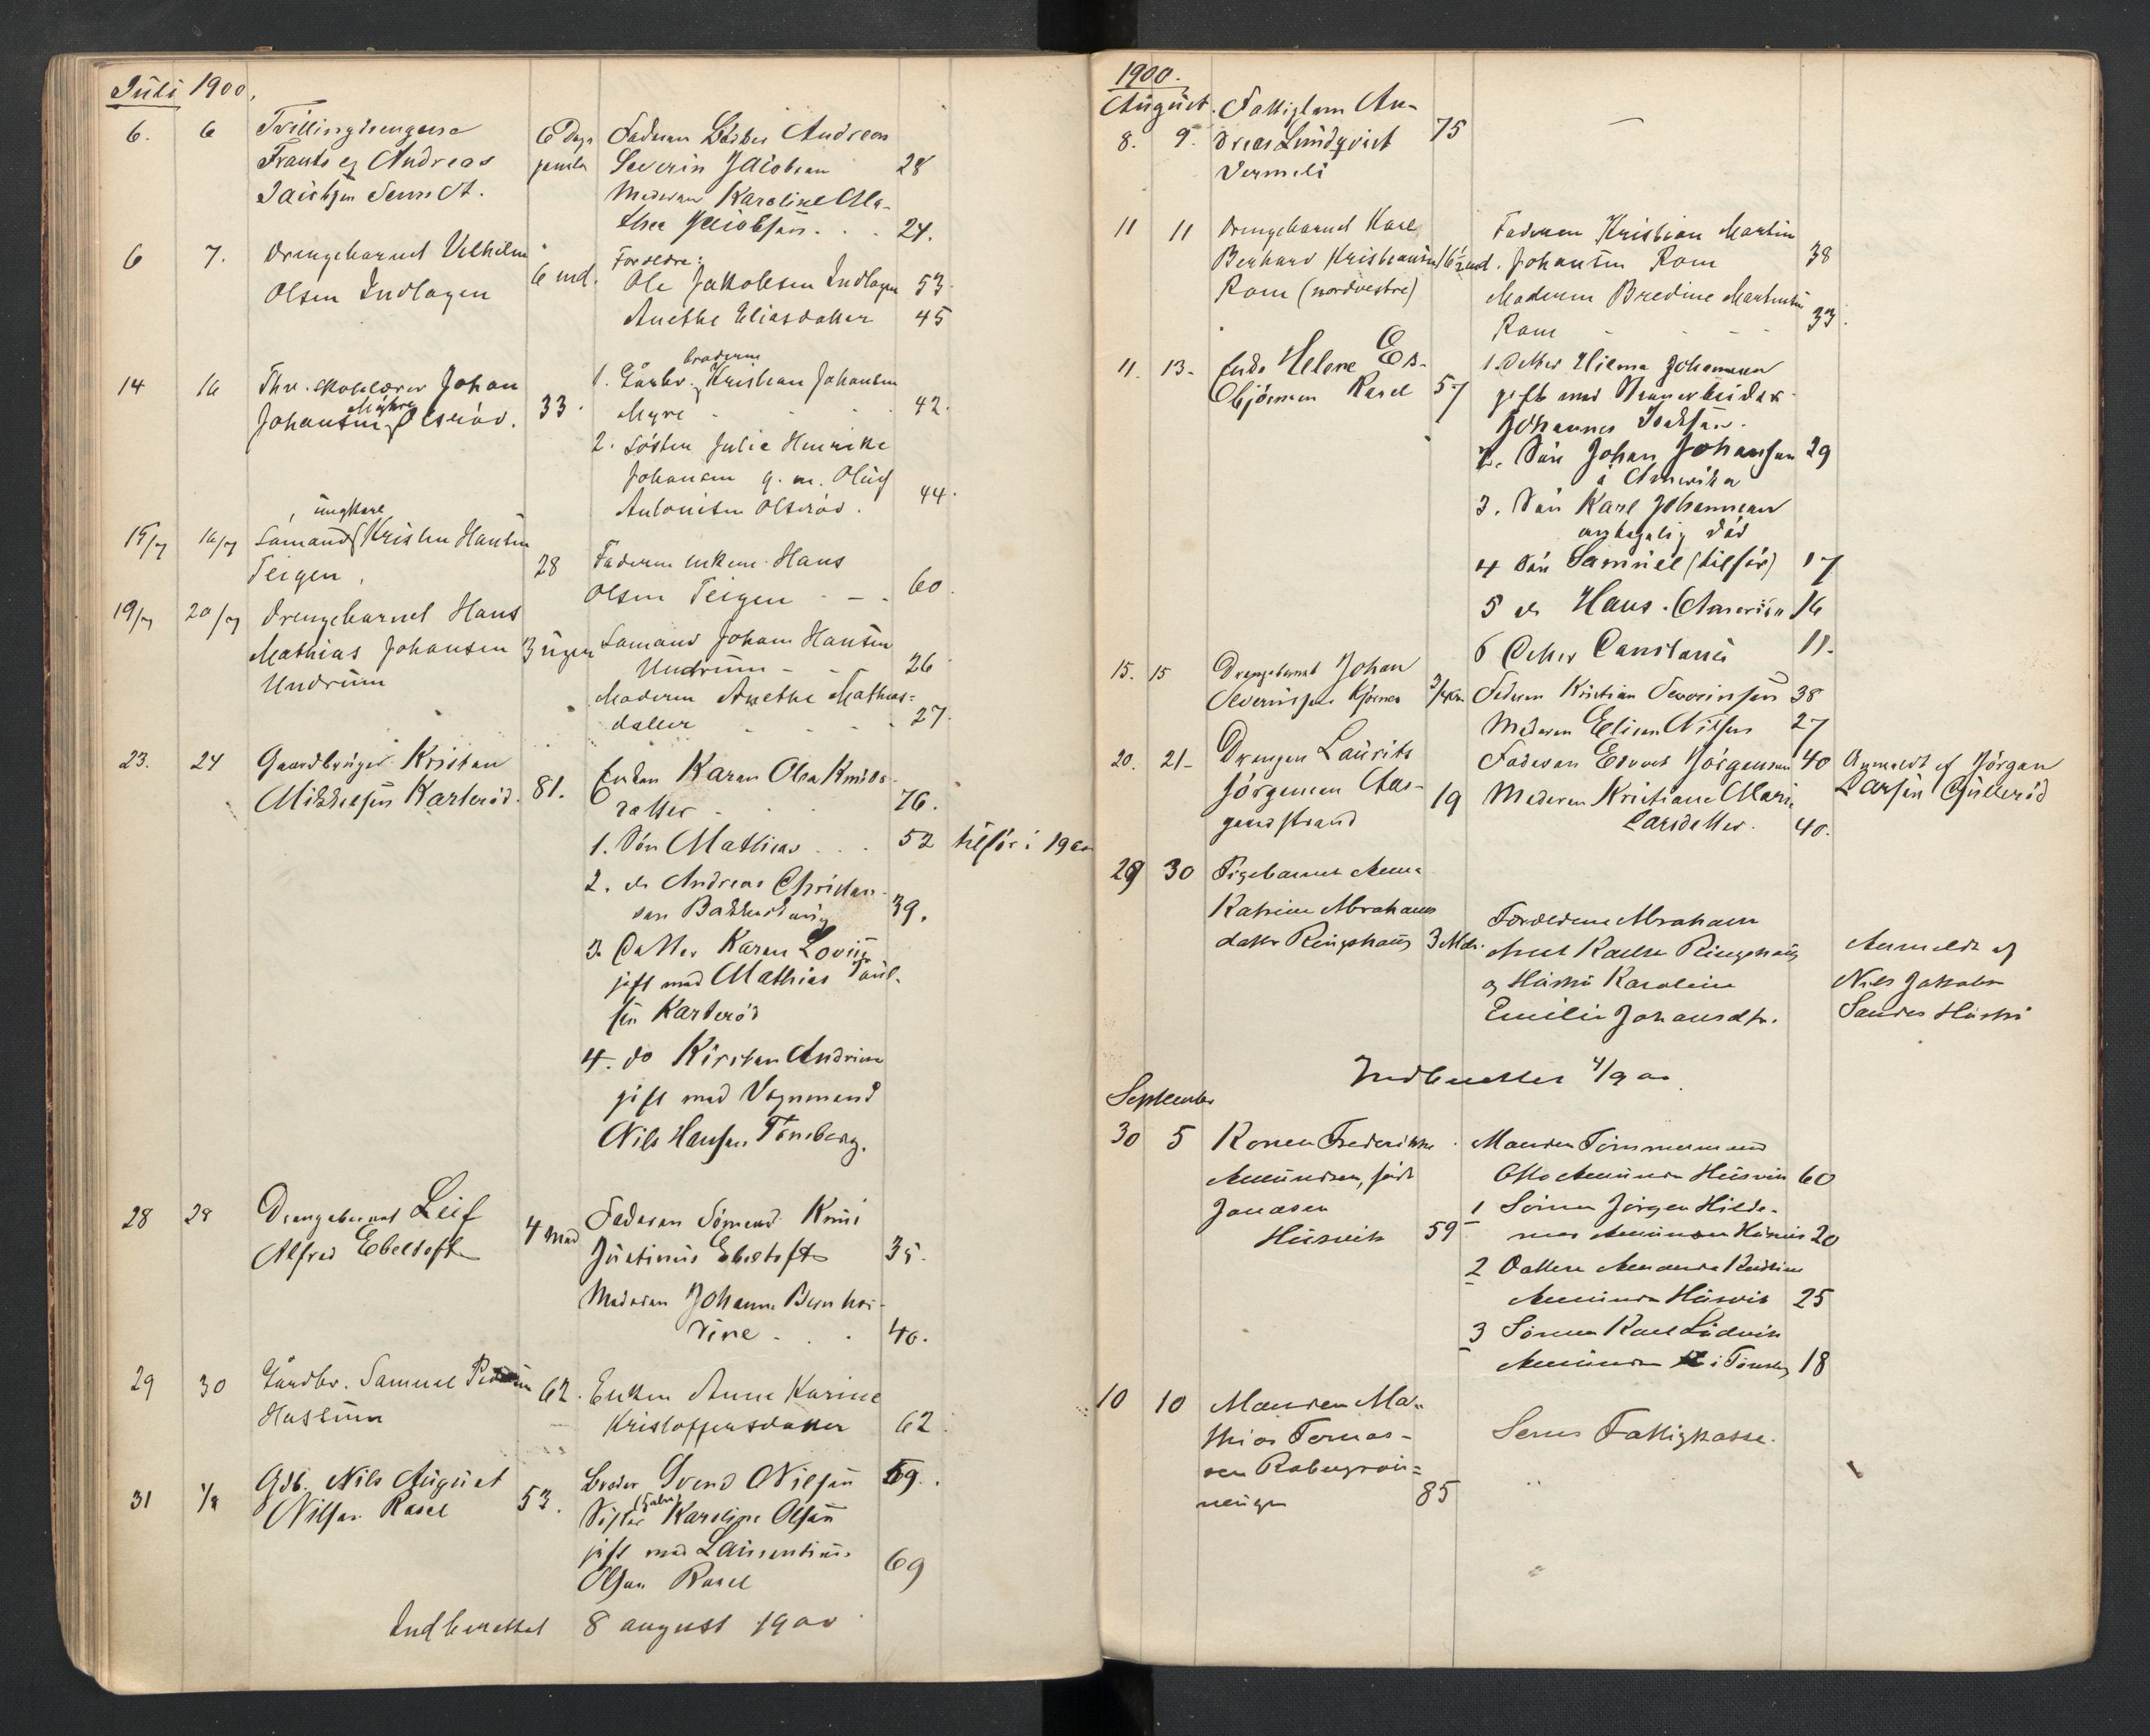 Juli 1900.
6. 6 Tvillingdrengene 6 Dage Faderen Andreas
Frants og Andreas gamle Severin Jacobsen 28
Moderen Karoline Ma-
thea Jacobsen . . 24.
6 7. Drengebarnet Vilhelm 6 md. Forældre:
Olsen Indlagen Ole Jakobsen Indlagen 53
Anethe Eliasdatter 45
14 16 Fhv. skolelærer Johan 33. 1. Gårbr. broderen Kristian Johansen
Johansen Myhre Olsrød. Myre - - - 42.
2. Søsten Julie Henrikke
Johansen g. m. Oluf
Antonisen Olsrød. 44.
15/7 16/7 Sømand ungkarl Kristen Hansen
Teigen, 28 Faderen enkem. Hans
Olsen Teigen - - - 60.
19/7 20/7 Drengebarnet Hans
Mathias Johansen 3 uger Sømand Johan Hansen
Undrum Undrum - - 26
Moderen Anethe Mathias=
datter - - - 27.
23. 24 Gaardbruger Kristen
Mikkelsen Karterød. 81. Enken Karen Olea Knuds-
datter - . . 76.
1. Søn Mathias . . . 52 tilsør: 1900
2. do Andreas Christen-
sen Bakkeskaug 39.
3. Datter Karen Lovise
gift med Mathias Paul-
sen Karterød
4. do Kirsten Andrine
gift med Vognmand
Nils Hansen Tønsberg.
28 28 Drengebarnet Leif 4 Mnd Faderen Sømand Knut
Alfred Ebeltoft Justinus Ebeltoft 35.
Moderen Johanne Bernhar-
dine - . . 40.
29 30 Gårdbr. Samuel Pedersen 62. Enken Anne Karine
Hassum Kristoffersdatter 62.
31 1/8 Gdb. Nils August 53. broder Svend Nilsen 59.
Nilsen Rasel Søster (halv) Karoline Olsen
gift med Laurentius
Olsen Rasel 69
Indberettet 8 august 1900
1900.
August. Fattiglem An- 75
8. 9. dreas Lundqvist —
Vermeli
11 11 Drengebarnet Karl Faderen Kristian Martin
Berhard Kristiansen 6½ md. Johansen Rom 38
Rom (nordvestre) Moderen Bredine Martinsen
Rom - - - - 33.
11. 13- Enke Helene Es- 1. Datter Hilma Johannesen
Rasel 57 gift med
Johannes Isaksen.
2. Søn Johan Johansen 29
i Amerika
3. Søn Karl Johannesen
død
4 Søn Samuel (tilsjøs) 17
5 do Hans. (Amerika 16
6 Datter Constance 11.
15. 15 Drengebarnet Johan
Severinsen Kjærnes Faderen Kristian Severinsen 38
Moderen Elise Nilsen 27
20. 21- Drengen Laurits Faderen Edvart Jørgensen 40 Anmeldt af Jørgen
Jørgensen Aas- 19 Moderen Kristiane Marie Larsen Gullerød
gaardstrand Larsdatter. 40.
29 30 Pigebarnet Anna
Katrine Abrahams Forældrene Abraham
datter Ringshaug 3 Mdr. Ringshaug Anmeldt af
og Hustru Karoline Nils Jakobsen
Emilie Johansdtr. Sandes Hustru
Indberettet 4/9 00
September
30 5 Konen Frederikke . Manden Tømmermand
Amundsen, født Otto Amundsen Husvik 60
Jonassen 1 Sønnen Jørgen Hilde-
Husvik 59 mar Amundsen Husvik 20
2 Datteren Amanda
Amundsen Husvik 25
3 Sønnen Karl Ludvik
Amundsen i Tønsberg 18
10 10 Manden Ma- Sems Fattigkasse.
thias Tomas-
sen
85